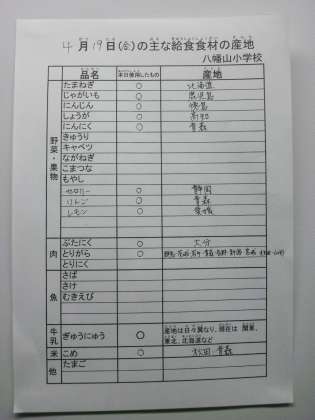 4月19日(金)の主な給食食材の産地
八幡山小学校
品名 本日使用したもの 産地
野菜・果物
たまねぎ ○ 北海道
じゃがいも ○ 鹿児島
にんじん ○ 徳島
しょうが ○ 高知
にんにく ○ 青森
きゅうり
キャベツ
ながねぎ
こまつな
もやし
セロリー ○ 静岡
リンゴ ○ 青森
レモン ○ 愛媛
肉
ぶたにく ○ 大分
とりがら ○
とりにく
魚
さば
さけ
むきえび
牛乳
ぎゅうにゅう ○ 産地は日々異なり、現在は 関東、
東北、北海道など
米 こめ ○ 秋田・青森
他 たまご